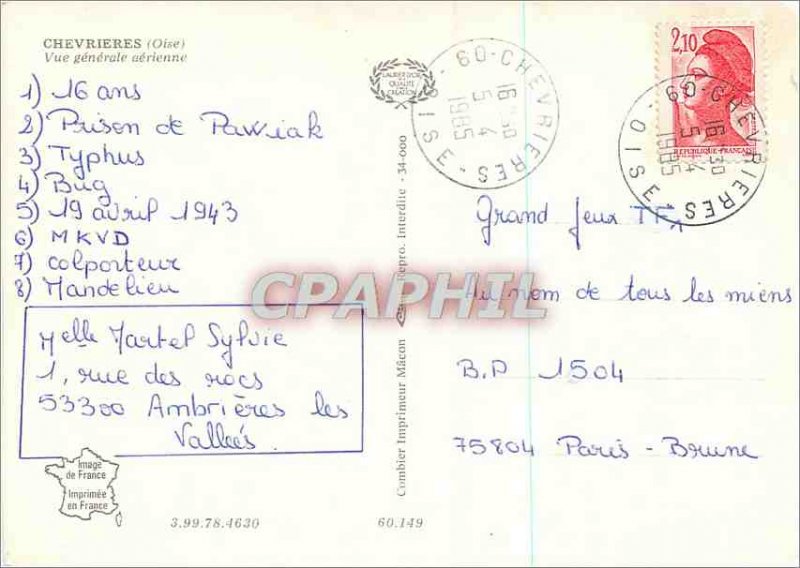 CHEVRIERES (Oise)
Vue générale aérienne
1) 16 ans
2) Prison de Pawiak
3) Typhus
4) Bug
5) 19 avril 1943
6) MKVD
7) colporteur
8) Mandelieu
Melle Martel Sylvie
1, rue des rocs
53300 Ambrières les
Vallées
Image
de France
Imprimée
en France
3.99.78.4630
60.149
LAURIER D'OR
DE LA
QUALITÉ
CRÉATION
Combier Imprimeur Mâcon
Repro. Interdite - 34-000
60-CHEVRIERES
16 30
5 4
1985
OISE
2,10
REPUBLIQUE FRANÇAISE
60-CHEVRIERES
16 30
5 4
1985
OISE
Grand Jeux TF1
Au nom de tous les miens
B.P 1504
75804 Paris - Brune
CPAPHIL